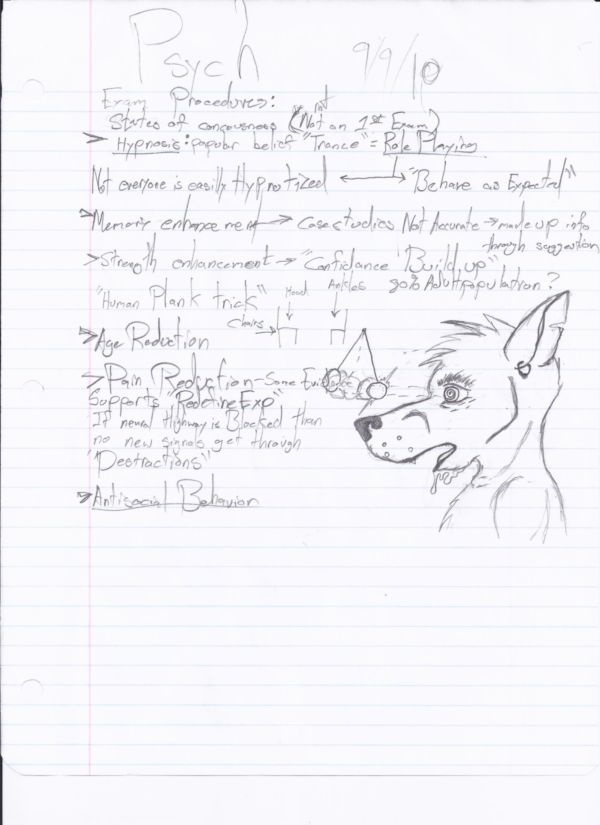 Psych 9/9/10
Exam Procedures:
States of conciousness (Not on 1st Exam)
> Hypnosis: popular belief "Trance" = Role Playing
Not everyone is easily Hypnotized ↔ "Behave as Expected"
> Memory enhancement → Case studies Not Accurate → made up info
through suggestion
> Strength enhancement → "Confidance Build up"
"Human Plank trick" Head Ankles 90% Adult population?
Chairs
> Age Reduction
> Pain Reduction - Some Evidence
Supports "Redefine Exp"
If neural Highway is Blocked than
no new signals get through
"Destractions"
> Antisocial Behavior